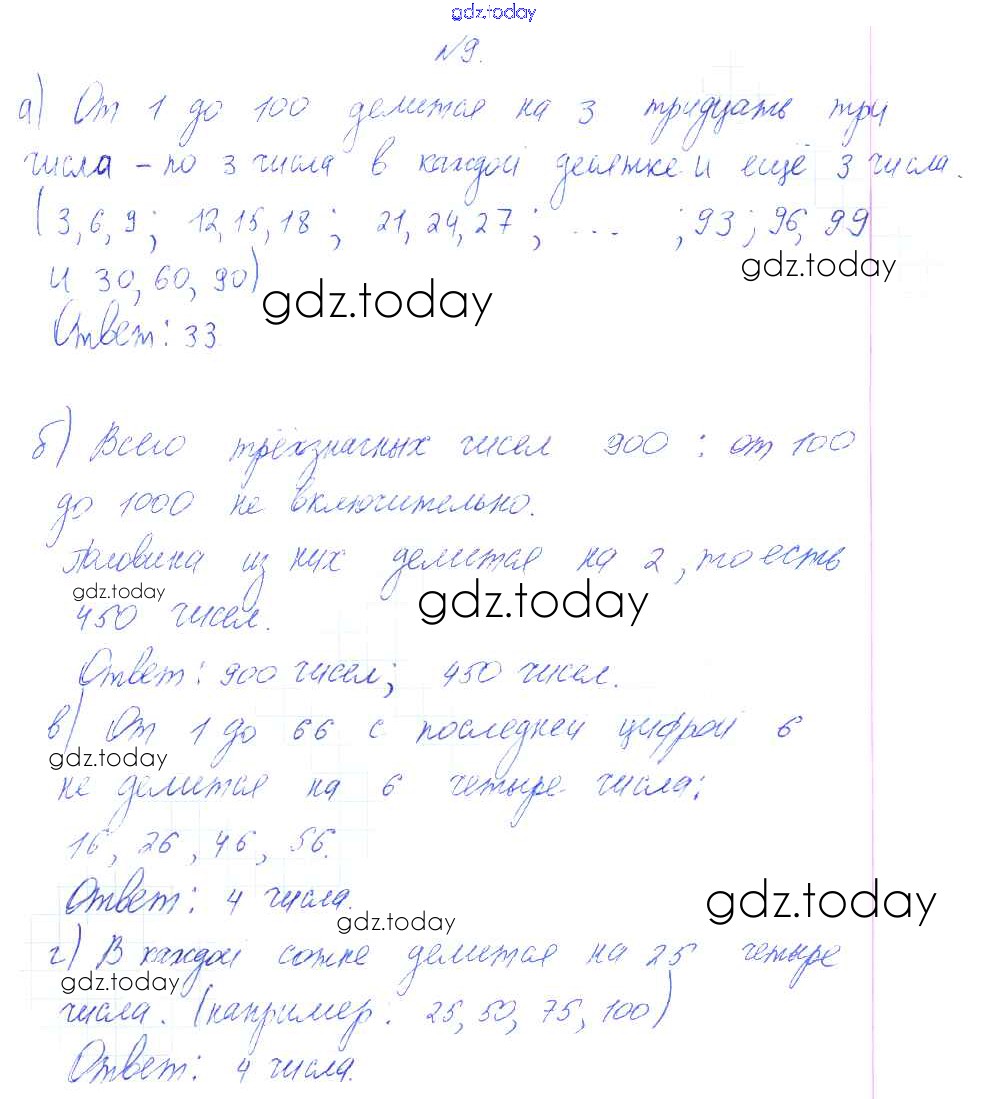 gdz.today
№9.
а) От 1 до 100 делится на 3 тридцать три
числа – по 3 числа в каждой десятке и ещё 3 числа.
(3, 6, 9; 12, 15, 18; 21, 24, 27; ... ; 93; 96, 99
gdz.today
и 30, 60, 90)
gdz.today
Ответ: 33
б) Всего трёхзначных чисел 900 : от 100
до 1000 не включительно.
Половина из них делится на 2, то есть
gdz.today
gdz.today
450 чисел.
Ответ: 900 чисел; 450 чисел.
в) От 1 до 66 с последней цифрой 6
gdz.today
не делится на 6 четыре числа:
16, 26, 46, 56.
Ответ: 4 числа.
gdz.today
gdz.today
г) В каждой сотне делится на 25 четыре
gdz.today
числа. (например: 25, 50, 75, 100)
Ответ: 4 числа.